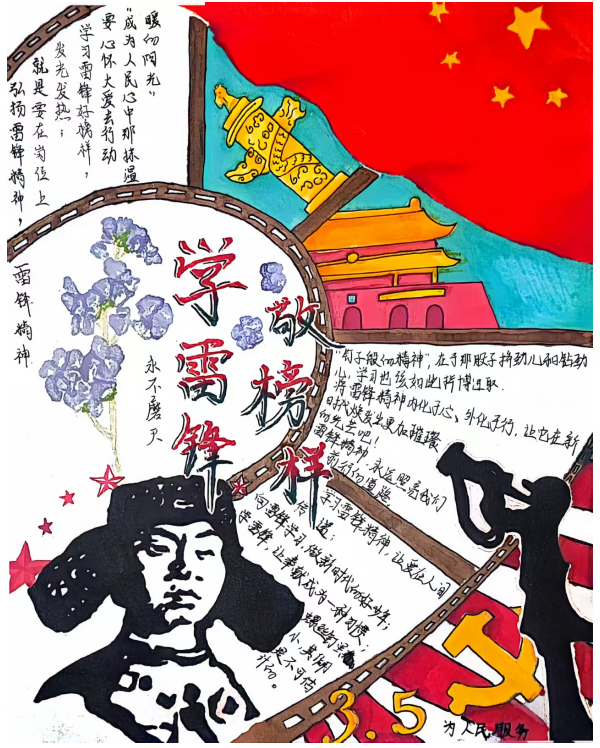 暖的阳光”
“成为人民心中那抹温
要心怀大爱去行动
学习雷锋好榜样，
发光发热；
就是要在岗位上
弘扬雷锋精神，
雷锋精神
永不磨灭
学雷锋
敬榜样
“钉子般的精神”，在于那股子挤劲儿和钻劲
儿，学习也该如此拼博进取.
将雷锋精神内化于心、外化于行，让它在新
时代焕发出更加璀璨
的光芒吧！
雷锋精神 永远照亮我们
前行的道路
学习雷锋精神，让爱在人间
传递；
向雷锋学习，做新时代的好少年；
学雷锋，让奉献成为一种习惯
螺丝钉虽
小，其作用
是不可估
计的。
3.5
为人民服务